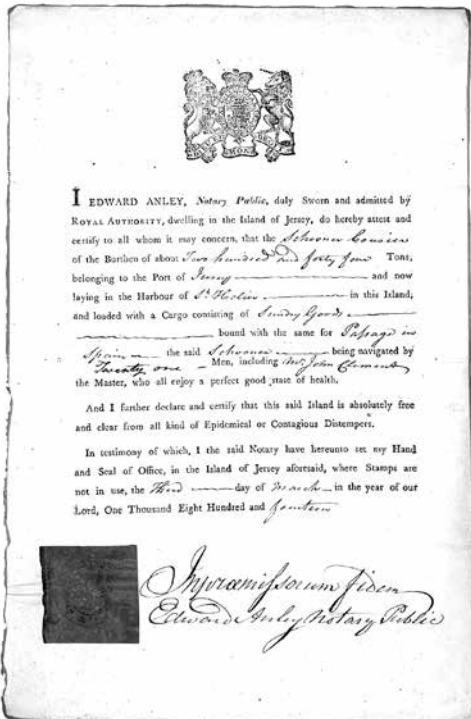 I EDWARD ANLEY, Notary Public, duly Sworn and admitted by
ROYAL AUTHORITY, dwelling in the Island of Jersey, do hereby attest and
certify to all whom it may concern, that the Schooner
of the Burthen of about Two hundred and forty four Tons,
belonging to the Port of Jersey and now
laying in the Harbour of St. Helier in this Island,
and loaded with a Cargo consisting of Sundry Goods
bound with the same for Passage in
Spain the said Schooner being navigated by
Twenty one Men, including Mr. John Clement
the Master, who all enjoy a perfect good state of health.
And I farther declare and certify that this said Island is absolutely free
and clear from all kind of Epidemical or Contagious Distempers.
In testimony of which, I the said Notary have hereunto set my Hand
and Seal of Office, in the Island of Jersey aforesaid, where Stamps are
not in use, the Third day of March in the year of our
Lord, One Thousand Eight Hundred and fourteen
In præmissorum fidem
Edward Anley Notary Public